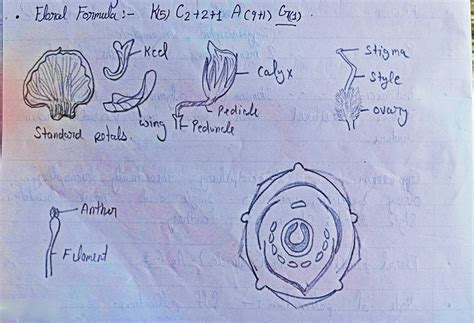 • Floral Formula :- K(5) C2+2+1 A(9+1) G1(1).
Keel
Calyx
Stigma
Style
Ovary
Wing
Pedicle
Peduncle
Standard petals.
Anther
Filament